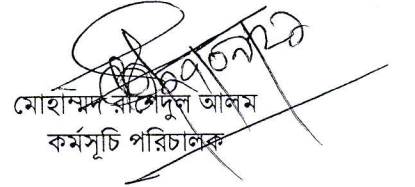 মোহাম্মদ রাশেদুল আলম
কর্মসূচি পরিচালক